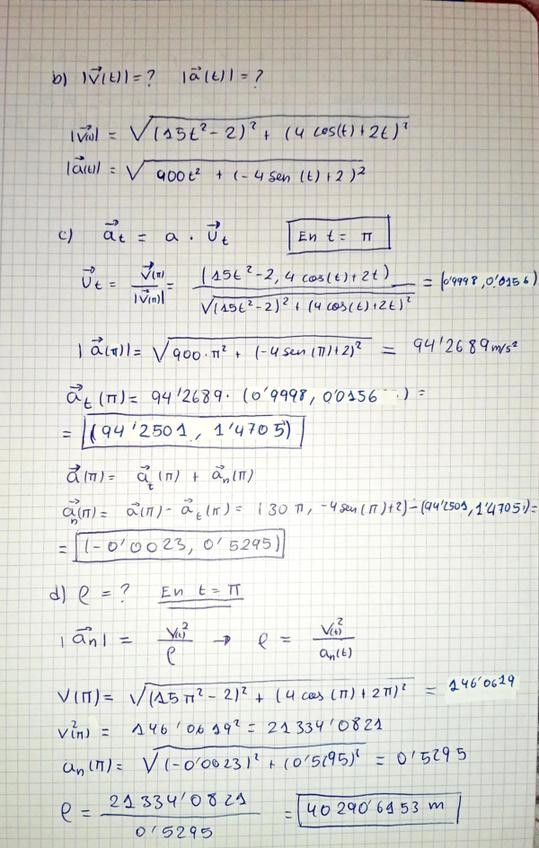 b) |v⃗(t)| = ? |a⃗(t)| = ?
|v⃗(t)| = √((15t²-2)² + (4 cos(t)+2t)²)
|a⃗(t)| = √(900t² + (-4sen(t)+2)²)
c) a⃗t = a · u⃗t En t = π
u⃗t = v⃗(π)/|v⃗(π)| = (15t²-2, 4 cos(t)+2t)/√((15t²-2)² + (4cos(t)+2t)²) = (0'9998, 0'0156)
|a⃗(π)| = √(900·π² + (-4sen(π)+2)²) = 94'2689 m/s²
a⃗t(π) = 94'2689 · (0'9998, 0'0156) =
= (94'2501, 1'4705)
a⃗(π) = a⃗t(π) + a⃗n(π)
a⃗n(π) = a⃗(π) - a⃗t(π) = (30π, -4sen(π)+2)-(94'2501, 1'4705) =
= (-0'0023, 0'5295)
d) ρ = ? En t = π
|a⃗n| = v(t)²/ρ → ρ = v(t)²/an(t)
v(π) = √((15π²-2)² + (4 cos(π)+2π)²) = 146'0619
v²(π) = 146'0619² = 21334'0821
an(π) = √((-0'0023)² + (0'5295)²) = 0'5295
ρ = 21334'0821/0'5295 = 40290'6153 m